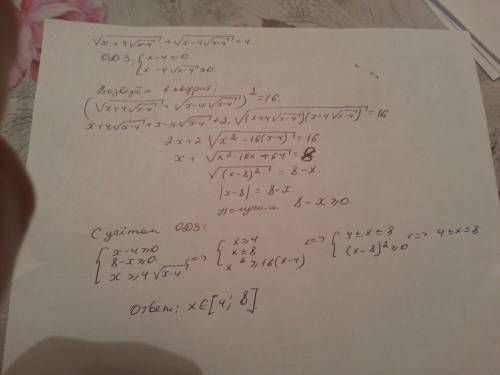 √(x+4√(x-4)) + √(x-4√(x-4)) = 4
ОДЗ: { x-4≥0
x-4√(x-4) ≥0.
Возведём в квадрат:
(√(x+4√(x-4)) + √(x-4√(x-4)))² = 16.
x+4√(x-4) + x-4√(x-4) + 2·√((x+4√(x-4))(x-4√(x-4))) = 16
2x+2√(x²-16(x-4)) = 16
x + √(x²-16x+64) = 8
√((x-8)²) = 8-x.
|x-8| = 8-x.
Получаем 8-x≥0.
С учётом ОДЗ:
{ x-4≥0 <=> { x≥4 <=> { 4≤x≤8 <=> 4≤x≤8
8-x≥0 x≤8 (x-8)²≥0
x≥4√(x-4) x²≥16(x-4)
Ответ: x∈[4; 8].